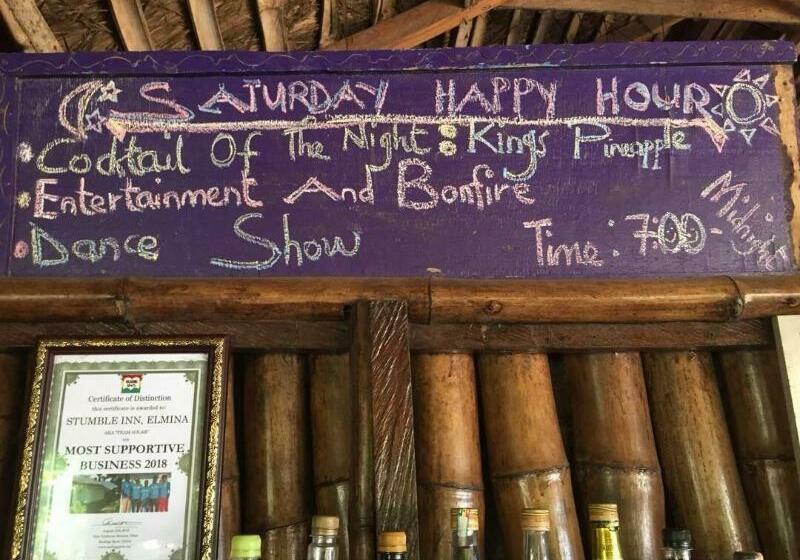 SATURDAY HAPPY HOUR
Cocktail Of The Night: Kings Pineapple
Entertainment And Bonfire
Dance Show Time: 7:00 - Midnight
Certificate of Distinction
this certificate is awarded to:
STUMBLE INN, ELMINA
MOST SUPPORTIVE
BUSINESS 2018